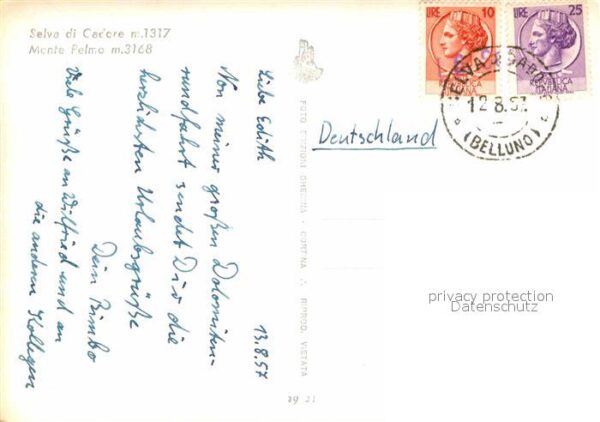 Selva di Cadore m.1317
Monte Pelmo m.3168
13.8.57
Liebe Edith
Von meiner großen Dolomiten-
rundfahrt sendet Dir die
herzlichsten Urlaubsgrüße
Dein Bimbo
Viele Grüße an Wilfried und an
die anderen Kollegen
FOTO EDIZIONI GHEDINA - CORTINA
RIPROD. VIETATA
19 21
Deutschland
LIRE 10
REPUBBLICA
ITALIANA
LIRE 25
REPUBBLICA
ITALIANA
SELVA DI CADORE
12.8.57
(BELLUNO)
privacy protection
Datenschutz